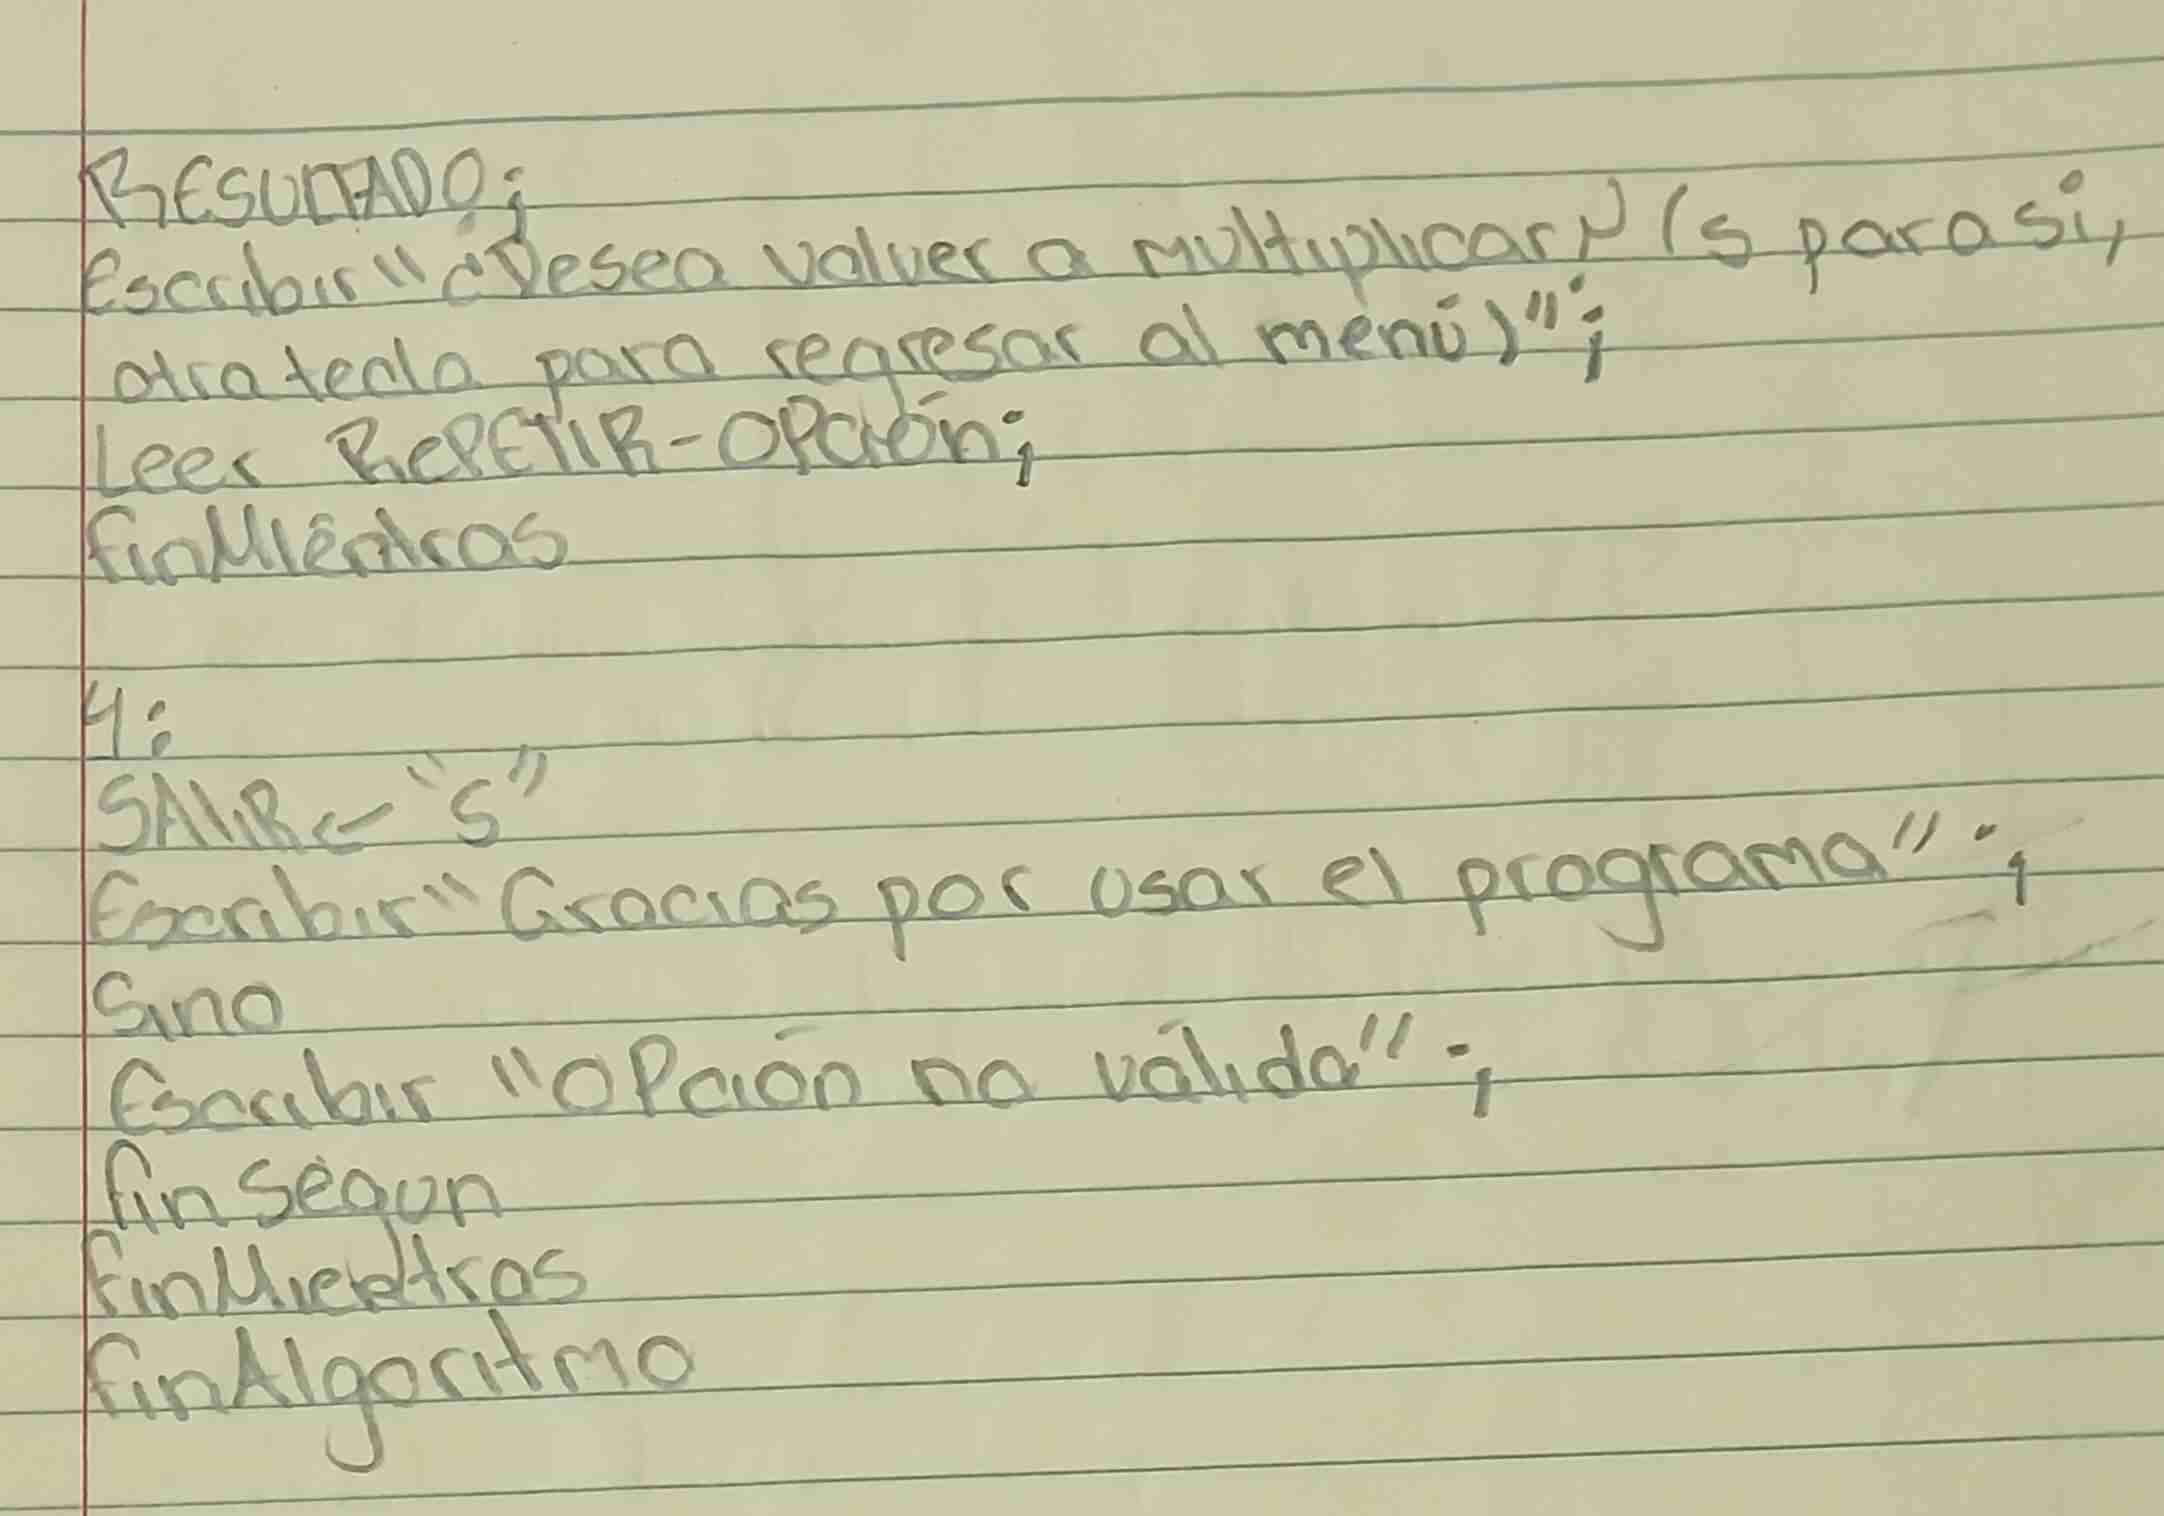 RESULTADO;
Escribir "¿Desea volver a multiplicar? (s para si,
otra tecla para regresar al menú)";
Leer REPETIR-OPción;
finMientras
4:
SALIR ← "S"
Escribir "Gracias por usar el programa";
Sino
Escribir "OPción no válida";
fin segun
finMientras
finAlgoritmo